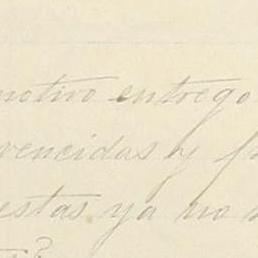 motivo entrego
vencidas y
estas ya no